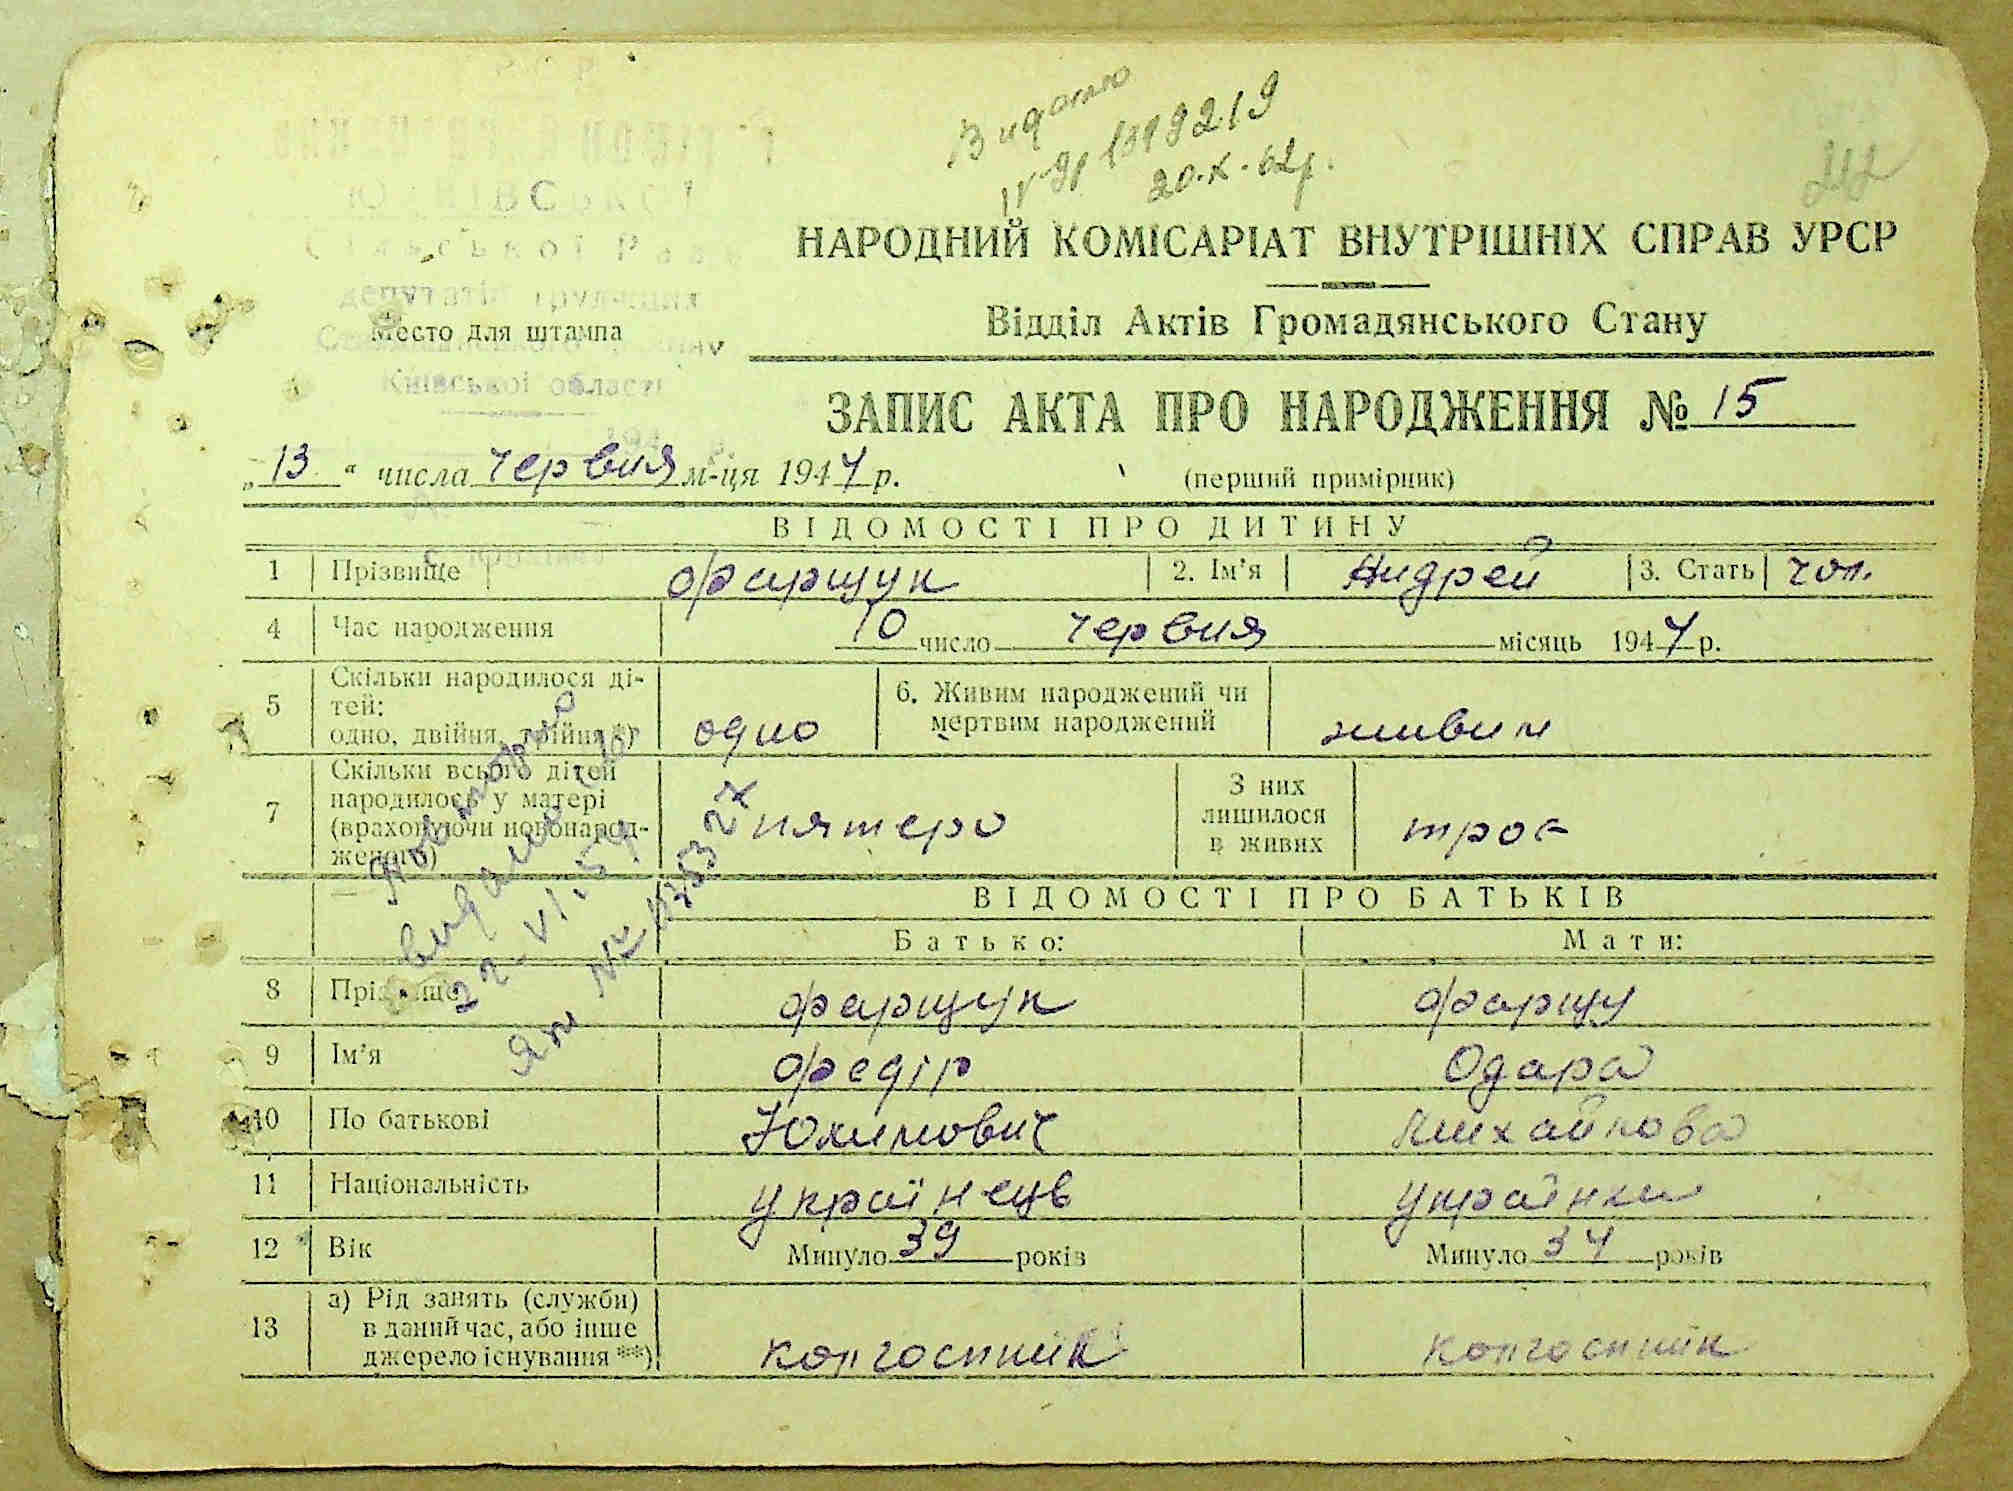 Видано
№ 1399219
20.X.62р.
НАРОДНИЙ КОМІСАРІАТ ВНУТРІШНІХ СПРАВ УРСР
Сільської Ради
депутатів трудящих
Место для штампа
Київської області
Відділ Актів Громадянського Стану
ЗАПИС АКТА ПРО НАРОДЖЕННЯ № 15
„13“ числа червня м-ця 1947 р. (перший примірник)
ВІДОМОСТІ ПРО ДИТИНУ
1 Прізвище Фарщук 2. Ім’я Андрей 3. Стать чол.
4 Час народження 10 число червня місяць 1947 р.
5 Скільки народилося ді-
тей:
одно, двійня, трійня*) одно 6. Живим народжений чи
мертвим народжений живим
7 Скільки всього дітей
народилось у матері
(враховуючи новонарод-
женого) пятеро З них
лишилося
в живих троє
Повторно
видано
22-VI.59
ВІДОМОСТІ ПРО БАТЬКІВ
Батько: Мати:
8 Прізвище Фарщук Фарщу
9 Ім’я Федір Одара
10 По батькові Юхимович Михайлова
11 Національність українець українка
12 Вік Минуло 39 років Минуло 34 років
13 а) Рід занять (служби)
в даний час, або інше
джерело існування **) колгоспник колгоспник